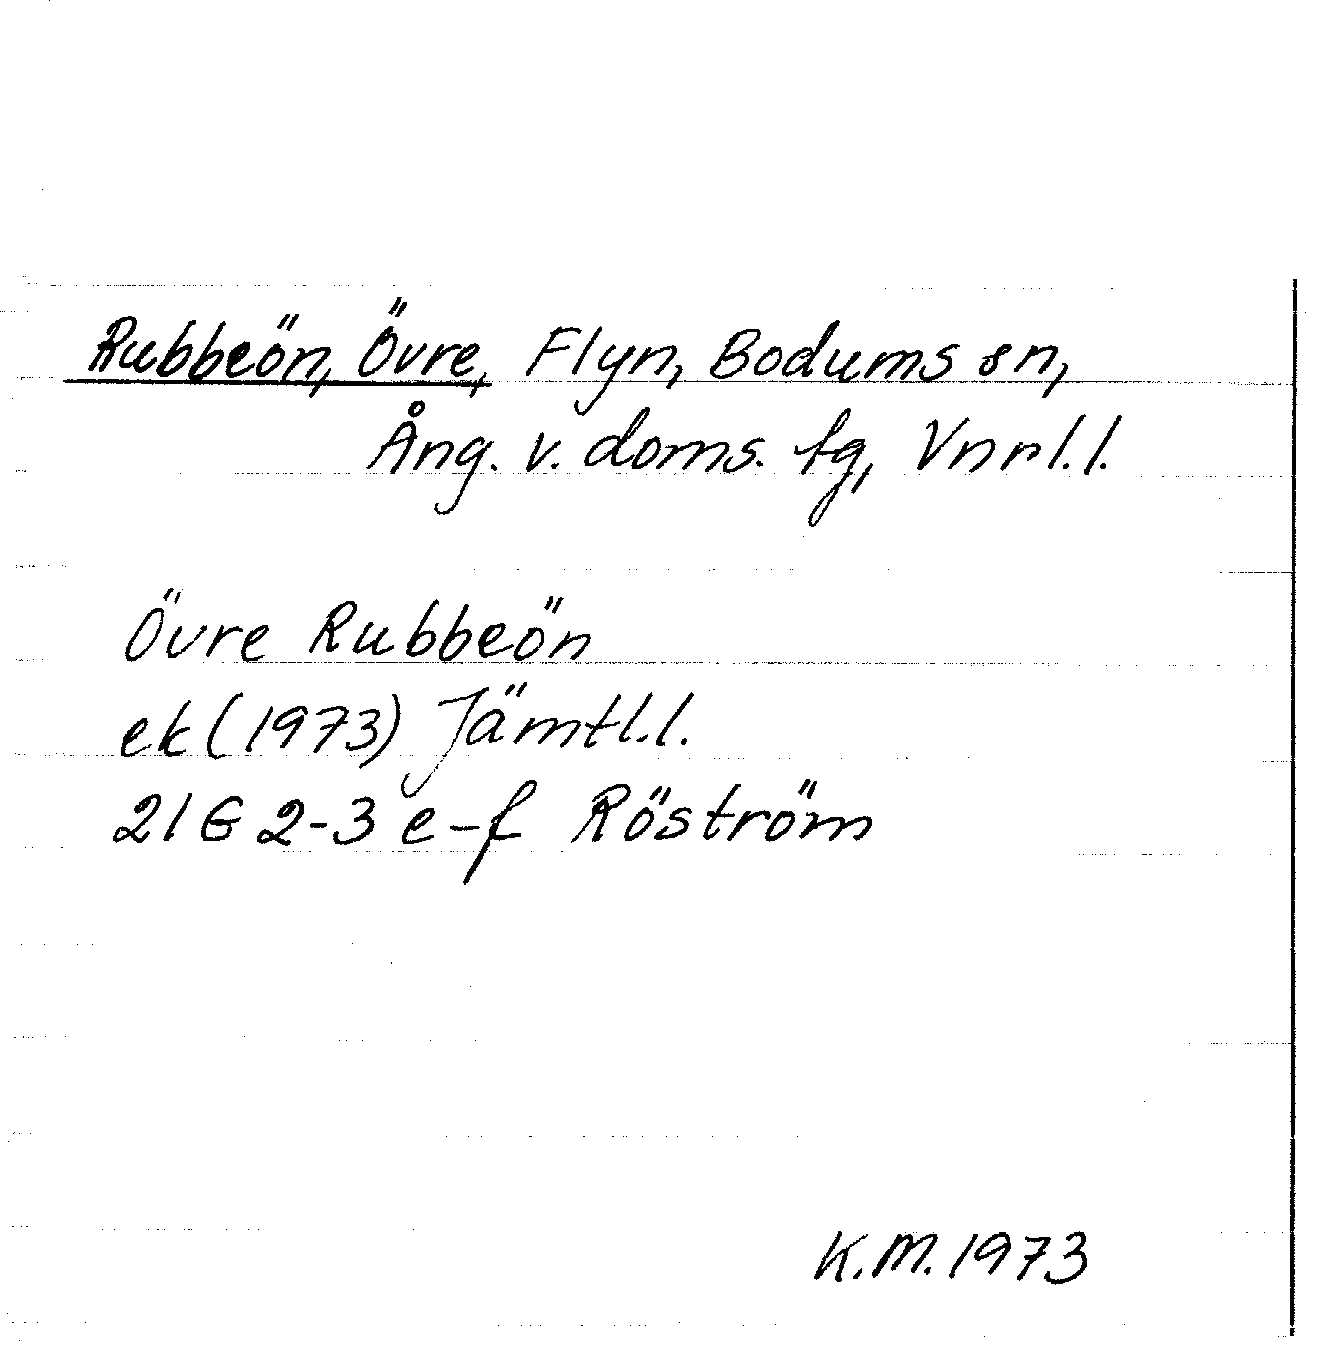 Rubbeön, Övre, Flyn, Bodums sn,
Ång. v. doms. fg, Vnrl.l.
Övre Rubbeön
ek (1973) Jämtl.l.
21 G 2-3 e-f Röström
K.M. 1973